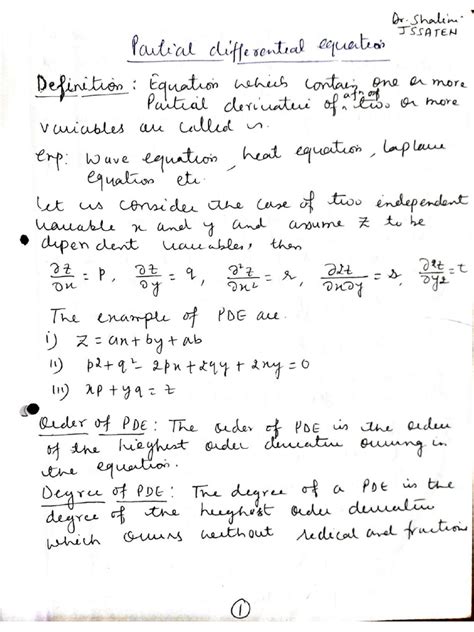 Dr. Shalini
JSSATEN
Partial differential equation
Definition : Equation which contain one or more
Partial derivative of a fn of two or more
variables are called
exp: Wave equation, heat equation, Laplace
Equation etc.
Let us consider the case of two independent
variable x and y and assume z to be
dependent variables, then
∂z/∂x = p, ∂z/∂y = q, ∂²z/∂x² = r, ∂²z/∂x∂y = s, ∂²z/∂y² = t
The example of PDE are.
i) z = ax + by + ab
ii) p² + q² - 2px + 2qy + 2xy = 0
iii) xp + yq = z
Order of PDE : The order of PDE is the order
of the highest order derivative occuring in
the equation.
Degree of PDE : The degree of a PDE is the
degree of the highest order derivative
which occurs without redical and fraction
1